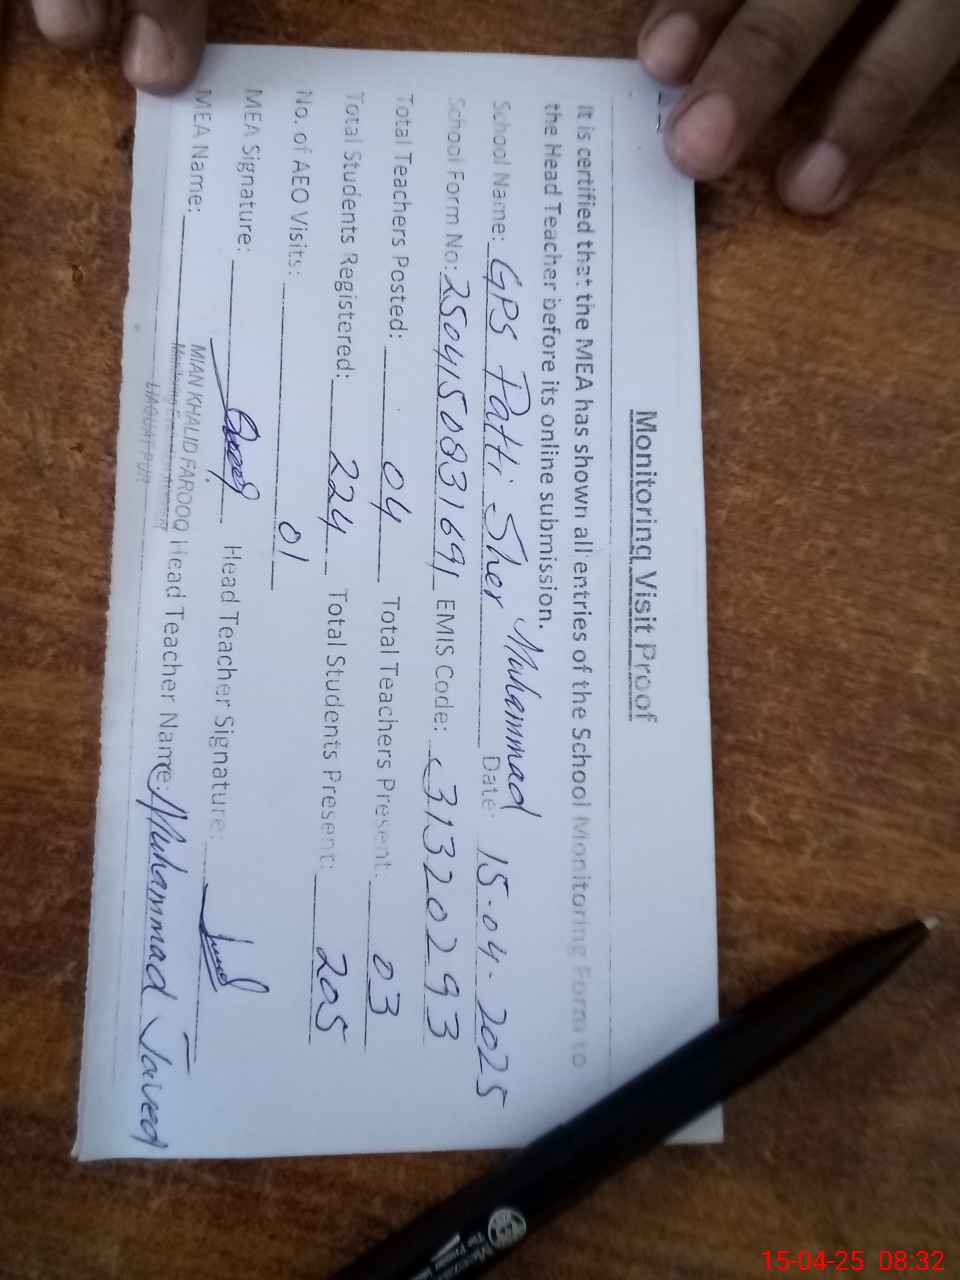 Monitoring Visit Proof
It is certified that the MEA has shown all entries of the School Monitoring Form to
the Head Teacher before its online submission.
School Name: GPS Patti Sher Muhammad Date: 15-04-2025
School Form No: 2504150831691 EMIS Code: 31320293
Total Teachers Posted: 04 Total Teachers Present: 03
Total Students Registered: 224 Total Students Present: 205
No. of AEO Visits: 01
MEA Signature: Head Teacher Signature:
MEA Name: MIAN KHALID FAROOQ Head Teacher Name: Muhammad Javed
LIAQUAT PUR
15-04-25 08:32